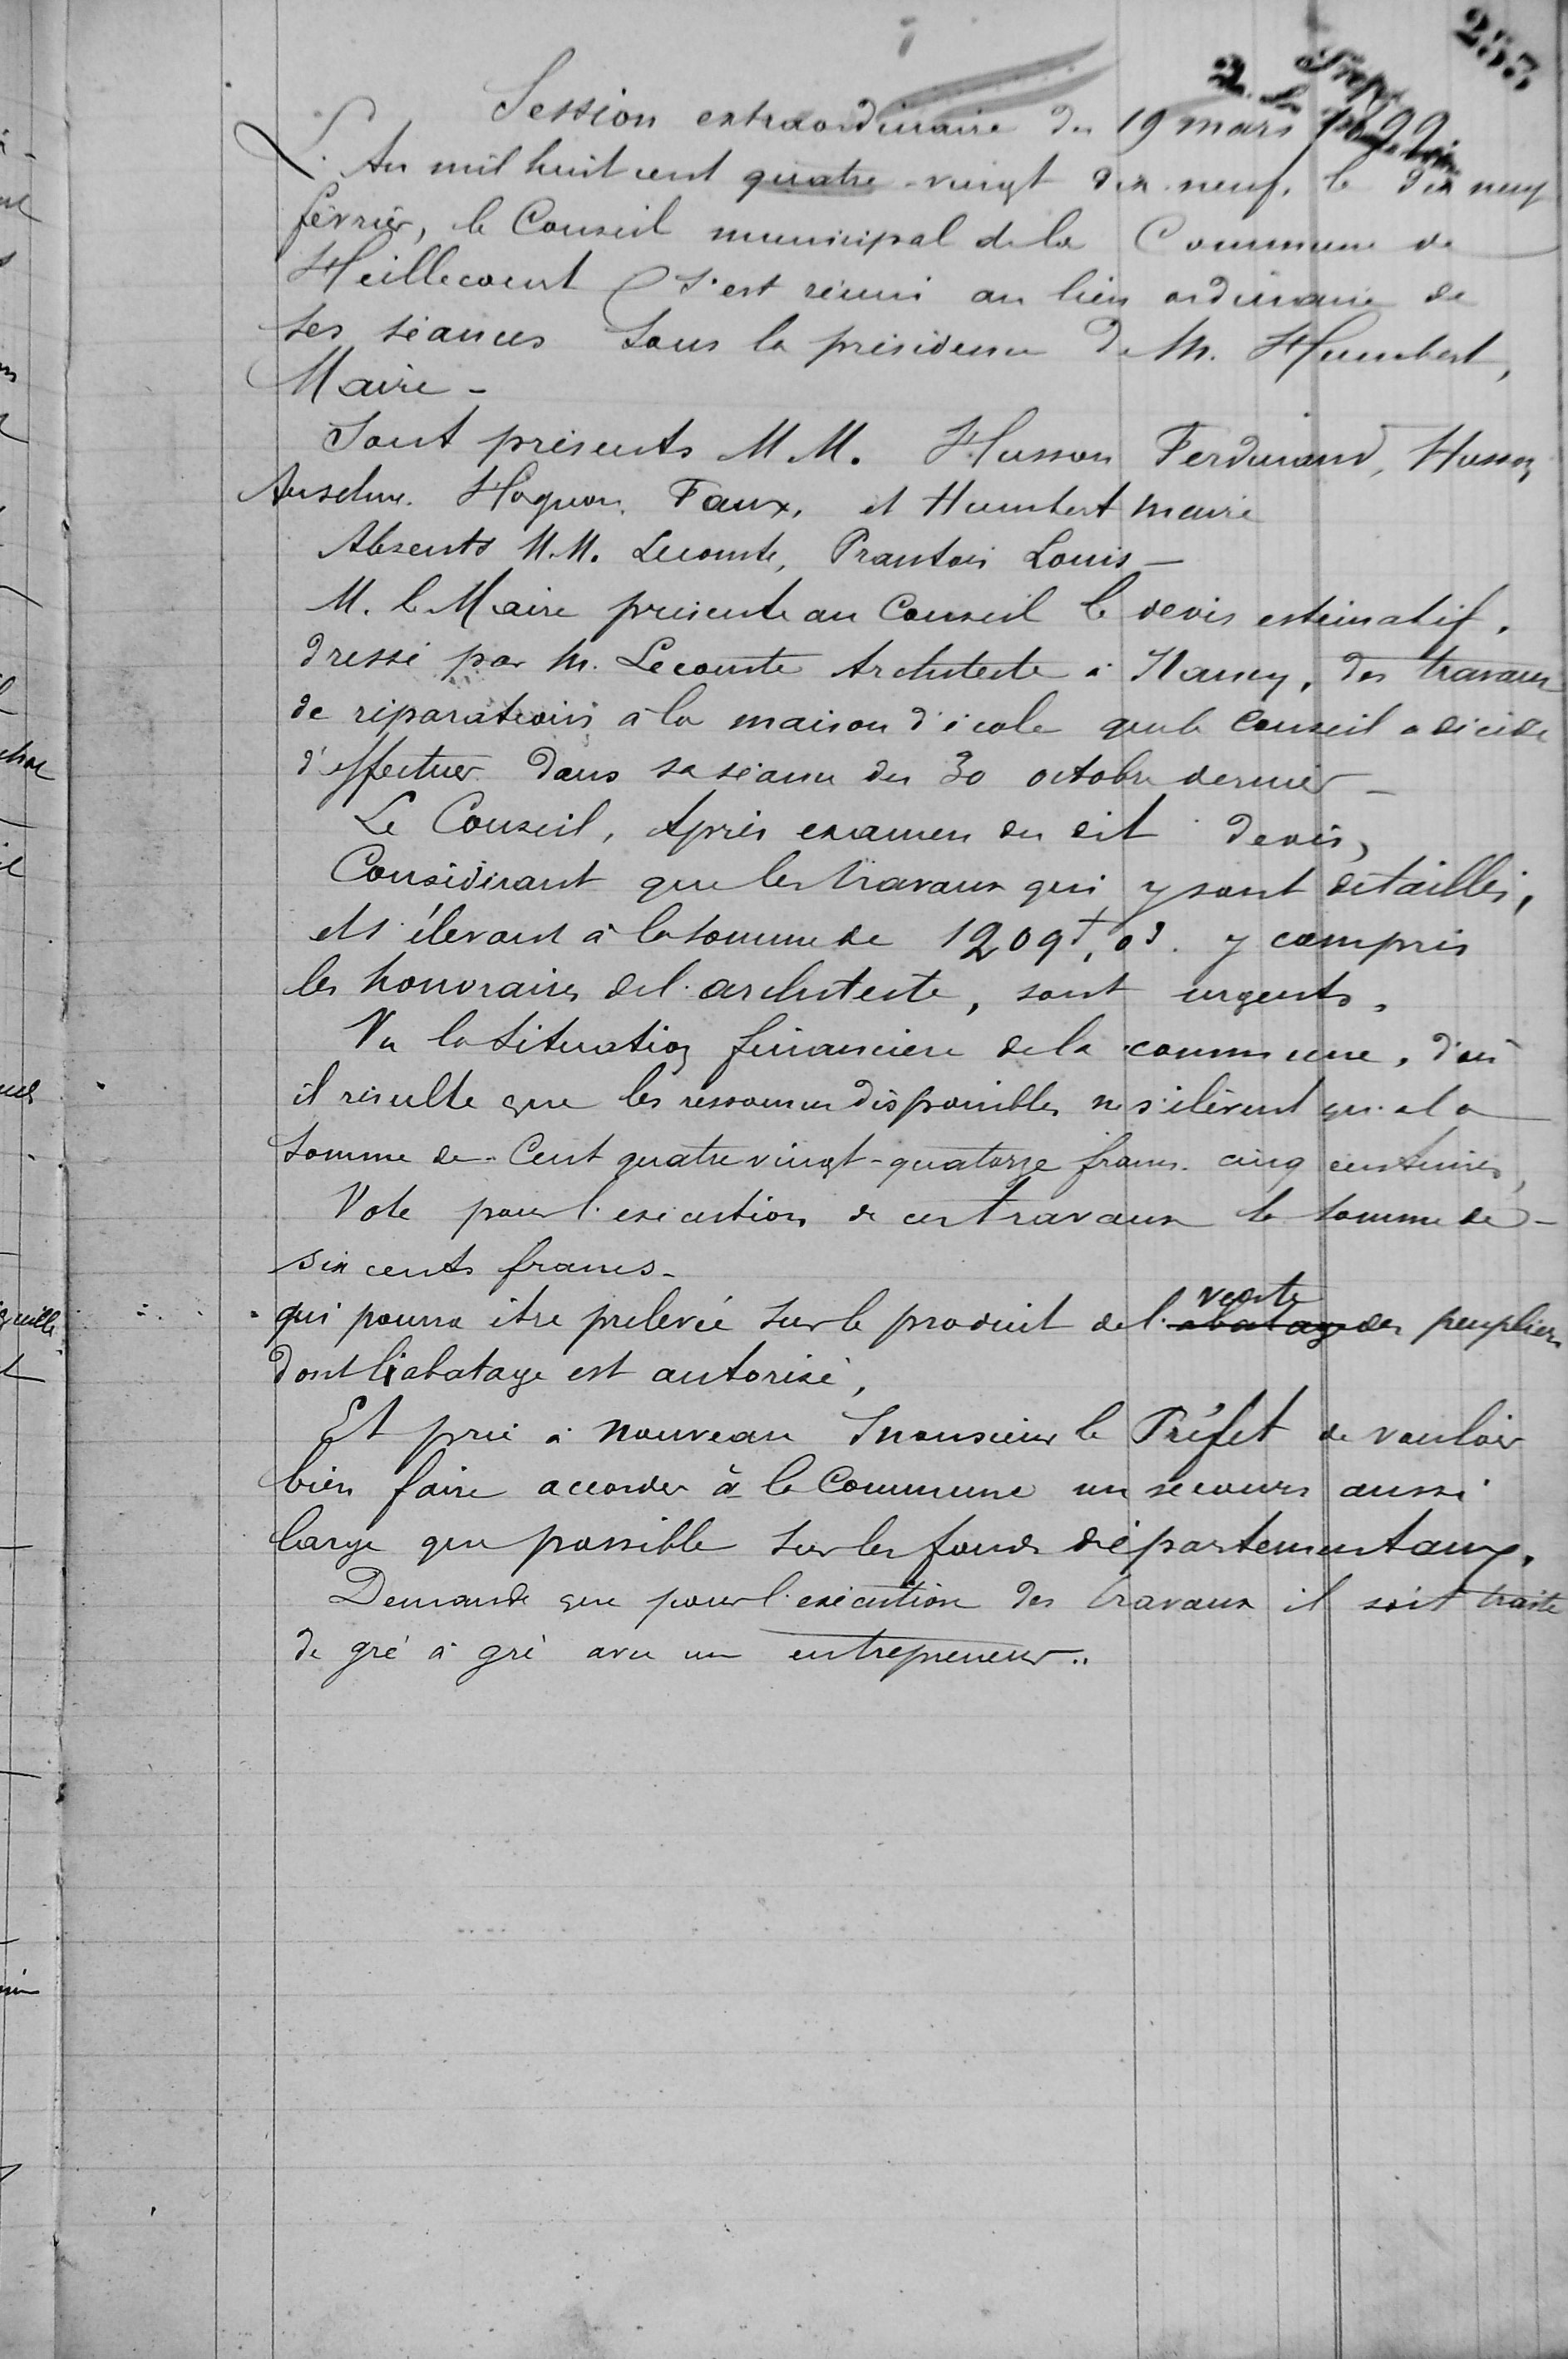 253
Session extraordinaire du 19 mars 1899
L'An mil huit cent quatre-vingt dix-neuf, le dix neuf
février, le Conseil municipal de la Commune de
Heillecourt s'est réuni au lieu ordinaire de
ses séances sous la présidence de M. Humbert,
Maire -
Sont présents M M. Husson Ferdinand, Husson
Anselme. Hoquon, Faux, et Humbert maire
Absents M.M. Lecomte, Prantois Louis -
M. le Maire présente au Conseil le devis estimatif,
dressé par M. Lecomte Architecte à Nancy, des travaux
de réparations à la maison d'école que le Conseil a décidé
d'effectuer dans sa séance du 30 octobre dernier -
Le Conseil, Après examen du dit devis,
Considérant que les travaux qui y sont détaillés,
et s'élevant à la somme de 1209f,03. y compris
les honoraires de l'architecte, sont urgents,
Vu la situation financière de la commune, d'où
il résulte que les ressources disponibles ne s'élèvent qu'à la
somme de Cent quatre vingt-quatorze francs cinq centimes,
Vote pour l'exécution de ces travaux la somme de -
six cents francs -
qui pourra être prélevée sur le produit de l'abatage vente des peupliers
dont l'abatage est autorisé,
Et prie à nouveau Monsieur le Préfet de vouloir
bien faire accorder à la Commune un secours aussi
large que possible sur les fonds départementaux.
Demande que pour l'exécution des travaux il soit traité
de gré à gré avec un entrepreneur..